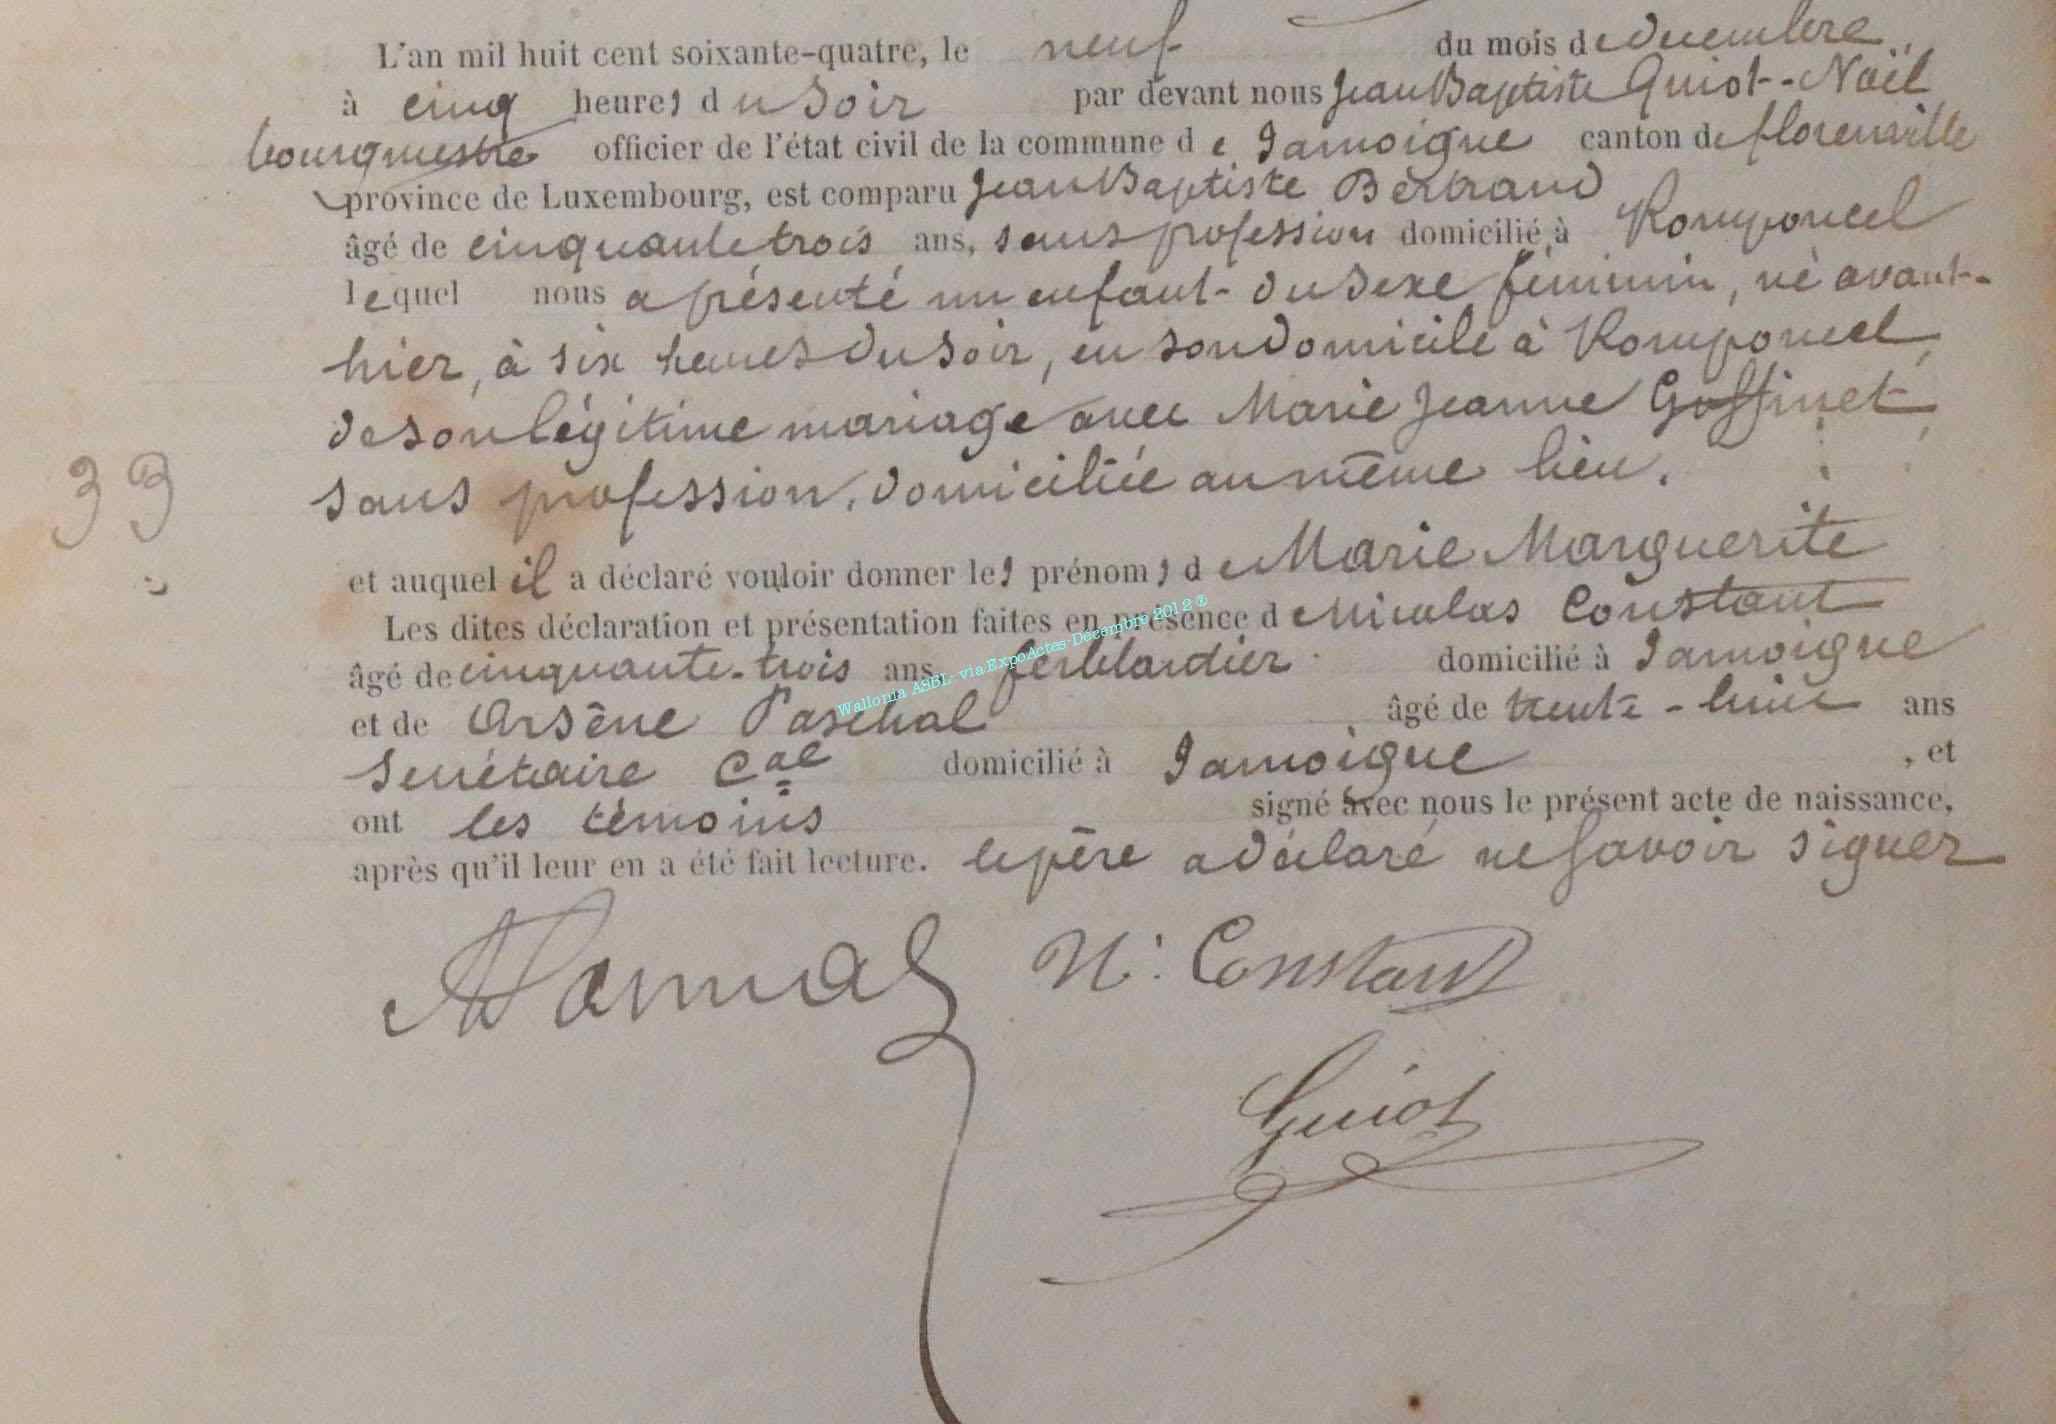 L'an mil huit cent soixante-quatre, le neuf du mois de décembre
à cinq heures du soir par devant nous Jean Baptiste Guiot-Noël
bourgmestre officier de l'état civil de la commune de Jamoigne canton de florenville
province de Luxembourg, est comparu Jean Baptiste Bertrand
âgé de cinquante trois ans, sans profession domicilié à Romponcel
lequel nous a présenté un enfant du sexe féminin, né avant-
hier, à six heures du soir, en son domicile à Romponcel,
de son légitime mariage avec Marie Jeanne Goffinet
sans profession, domiciliée au même lieu.
33
et auquel il a déclaré vouloir donner les prénoms de Marie Marguerite
Les dites déclaration et présentation faites en présence de Nicolas Constant
âgé de cinquante-trois ans, ferblantier domicilié à Jamoigne
Wallonia ASBL- via ExpoActes-Décembre 2012 ®
et de Arsène Paschal âgé de trente-huit ans
Secrétaire Cal domicilié à Jamoigne , et
ont les témoins signé avec nous le présent acte de naissance,
après qu'il leur en a été fait lecture. le père a déclaré ne savoir signer
N. Constant
Guiot